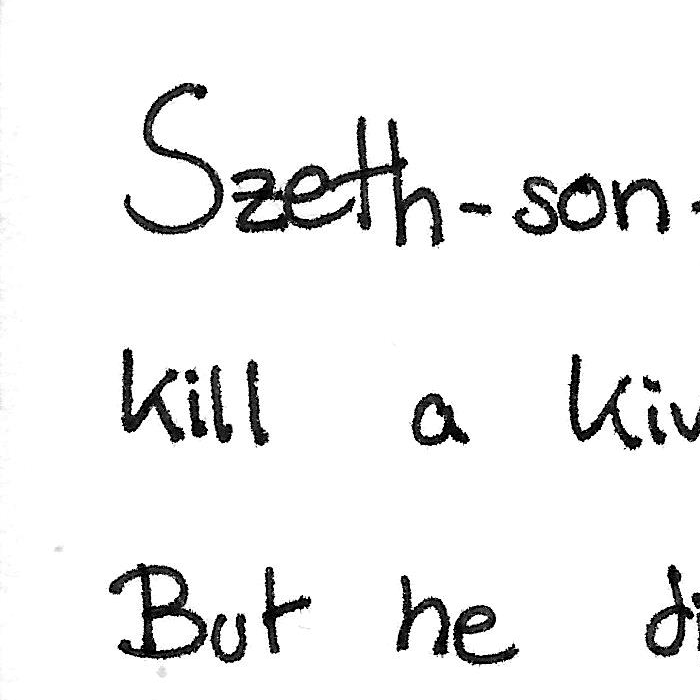 Szeth-son-
kill a
But he